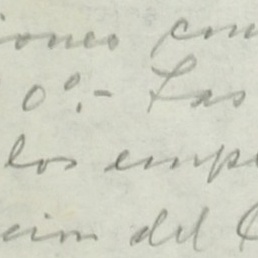 iones con
0º.- Las
los emp
cion del